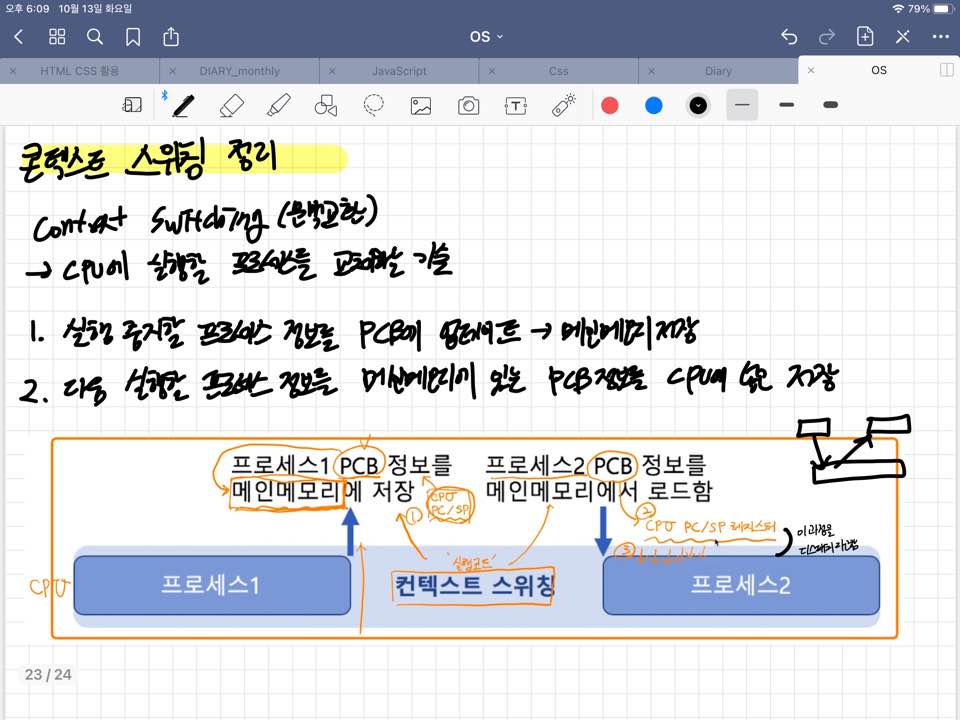 오후 6:09 10월 13일 화요일
79%
OS
HTML CSS 활용
DIARY_monthly
JavaScript
Css
Diary
OS
콘텍스트 스위칭 정리
Context Switching (문맥교환)
→ CPU에 실행할 프로세스를 교체하는 기술
1. 실행 중지할 프로세스 정보를 PCB에 업데이트 → 메인메모리 저장
2. 다음 실행할 프로세스 정보를 메인메모리에 있는 PCB정보를 CPU에 넣고 저장
프로세스1 PCB 정보를
메인메모리에 저장
프로세스2 PCB 정보를
메인메모리에서 로드함
① CPU
PC/SP
②
CPU PC/SP 레지스터
③
이 과정을
디스패치라고함
'실행코드'
CPU
프로세스1
컨텍스트 스위칭
프로세스2
23 / 24